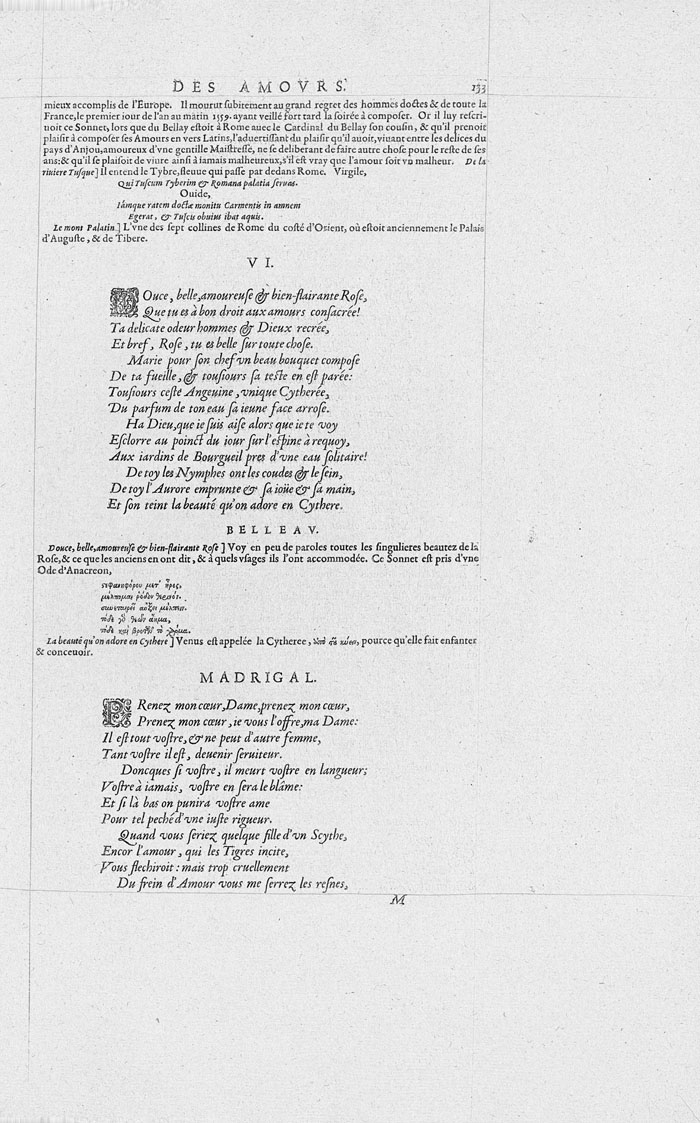 DES AMOVRS.
133
mieux accomplis de l'Europe. Il mourut ſubitement au grand regret des hommes doctes & de toute la
France, le premier iour de l'an au matin 1559. ayant veillé fort tard la ſoirée à compoſer. Or il luy reſcri-
uoit ce Sonnet, lors que du Bellay eſtoit à Rome auec le Cardinal du Bellay ſon couſin, & qu'il prenoit
plaiſir à compoſer ſes Amours en vers Latins, l'aduertiſſant du plaiſir qu'il auoit, viuant entre les delices du
pays d'Anjou, amoureux d'vne gentille Maiſtreſſe, ne ſe deliberant de faire autre choſe pour le reſte de ſes
ans: & qu'il ſe plaiſoit de viure ainſi à iamais malheureux, s'il eſt vray que l'amour ſoit vn malheur. De la
riuiere Tuſque] Il entend le Tybre, fleuue qui paſſe par dedans Rome. Virgile,
Qui Tuſcum Tyberim & Romana palatia ſeruas.
Ouide,
Iámque ratem doctæ monitu Carmentis in amnem
Egerat, & Tuſcis obuius ibat aquis.
Le mont Palatin.] L'vne des ſept collines de Rome du coſté d'Orient, où eſtoit anciennement le Palais
d'Auguſte, & de Tibere.
VI.
DOuce, belle, amoureuſe & bien-flairante Roſe,
Que tu es à bon droit aux amours conſacrée!
Ta delicate odeur hommes & Dieux recrée,
Et bref, Roſe, tu es belle ſur toute choſe.
Marie pour ſon chef vn beau bouquet compoſe
De ta fueille, & touſiours ſa teſte en eſt parée:
Touſiours ceſte Angeuine, vnique Cytherée,
Du parfum de ton eau ſa ieune face arroſe.
Ha Dieu, que ie ſuis aiſe alors que ie te voy
Eſclorre au poinct du iour ſur l'eſpine à requoy,
Aux iardins de Bourgueil pres d'vne eau ſolitaire!
De toy les Nymphes ont les coudes & le ſein,
De toy l'Aurore emprunte & ſa ioüe & ſa main,
Et ſon teint la beauté qu'on adore en Cythere.
BELLEAV.
Douce, belle, amoureuſe & bien-flairante Roſe] Voy en peu de paroles toutes les ſingulieres beautez de la
Roſe, & ce que les anciens en ont dit, & à quels vſages ils l'ont accommodée. Ce Sonnet eſt pris d'vne
Ode d'Anacreon,
ςεφανηφόρου μετ' ἦρος,
μέλπομαι ῥόδον θερινόν.
συνεταιρεῖ αὔξει μέλπειν.
τόδε γὸ θεῶν ἄημα,
τόδε καὶ βροτοῖς τὸ χάρμα.
La beauté qu'on adore en Cythere] Venus eſt appelée la Cytheree, ὑπὸ τοῦ κύειν, pource qu'elle fait enfanter
& conceuoir.
MADRIGAL.
PRenez mon cœur, Dame, prenez mon cœur,
Prenez mon cœur, ie vous l'offre, ma Dame:
Il eſt tout voſtre, & ne peut d'autre femme,
Tant voſtre il eſt, deuenir ſeruiteur.
Doncques ſi voſtre, il meurt voſtre en langueur;
Voſtre à iamais, voſtre en ſera le blâme:
Et ſi là bas on punira voſtre ame
Pour tel peché d'vne iuſte rigueur.
Quand vous ſeriez quelque fille d'vn Scythe,
Encor l'amour, qui les Tigres incite,
Vous flechiroit: mais trop cruellement
Du frein d'Amour vous me ſerrez les reſnes,
M